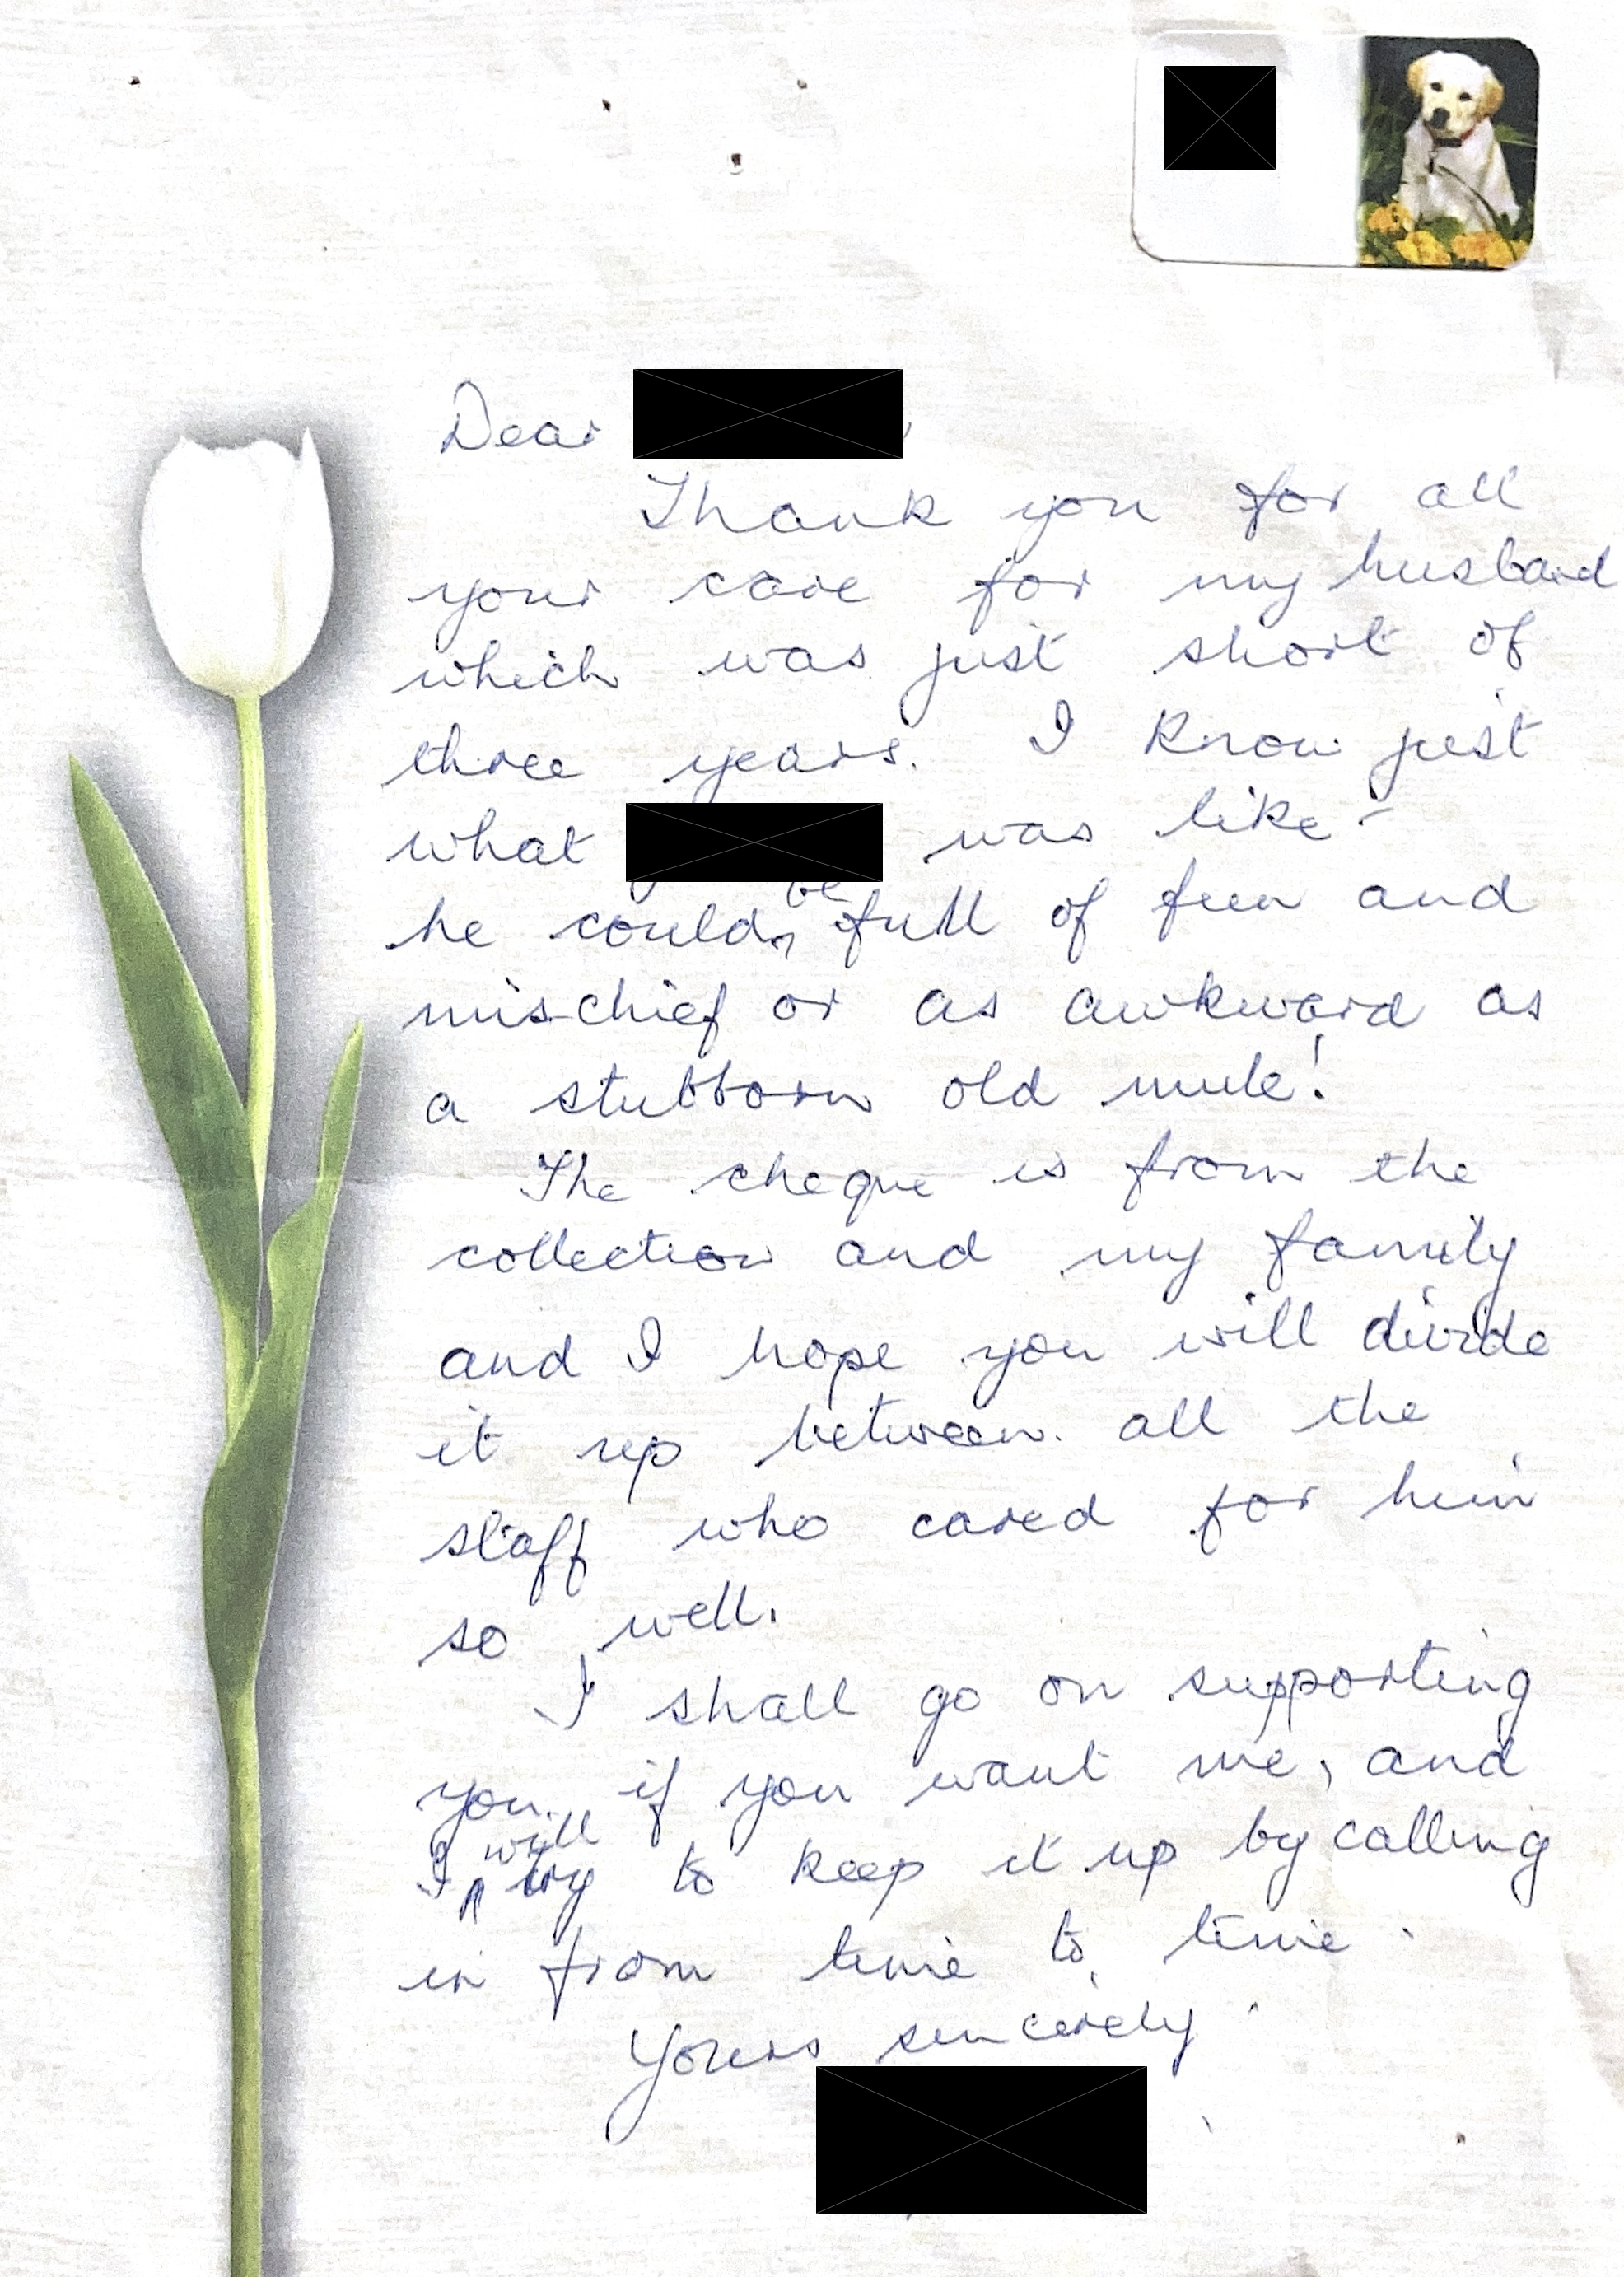 Dear ,
Thank you for all
your care for my husband
which was just short of
three years. I know just
what was like -
he could be full of fun and
mischief or as awkward as
a stubborn old mule!
The cheque is from the
collection and my family
and I hope you will divide
it up between all the
staff who cared for him
so well.
I shall go on supporting
you if you want me, and
I will try to keep it up by calling
in from time to time.
Yours sincerely